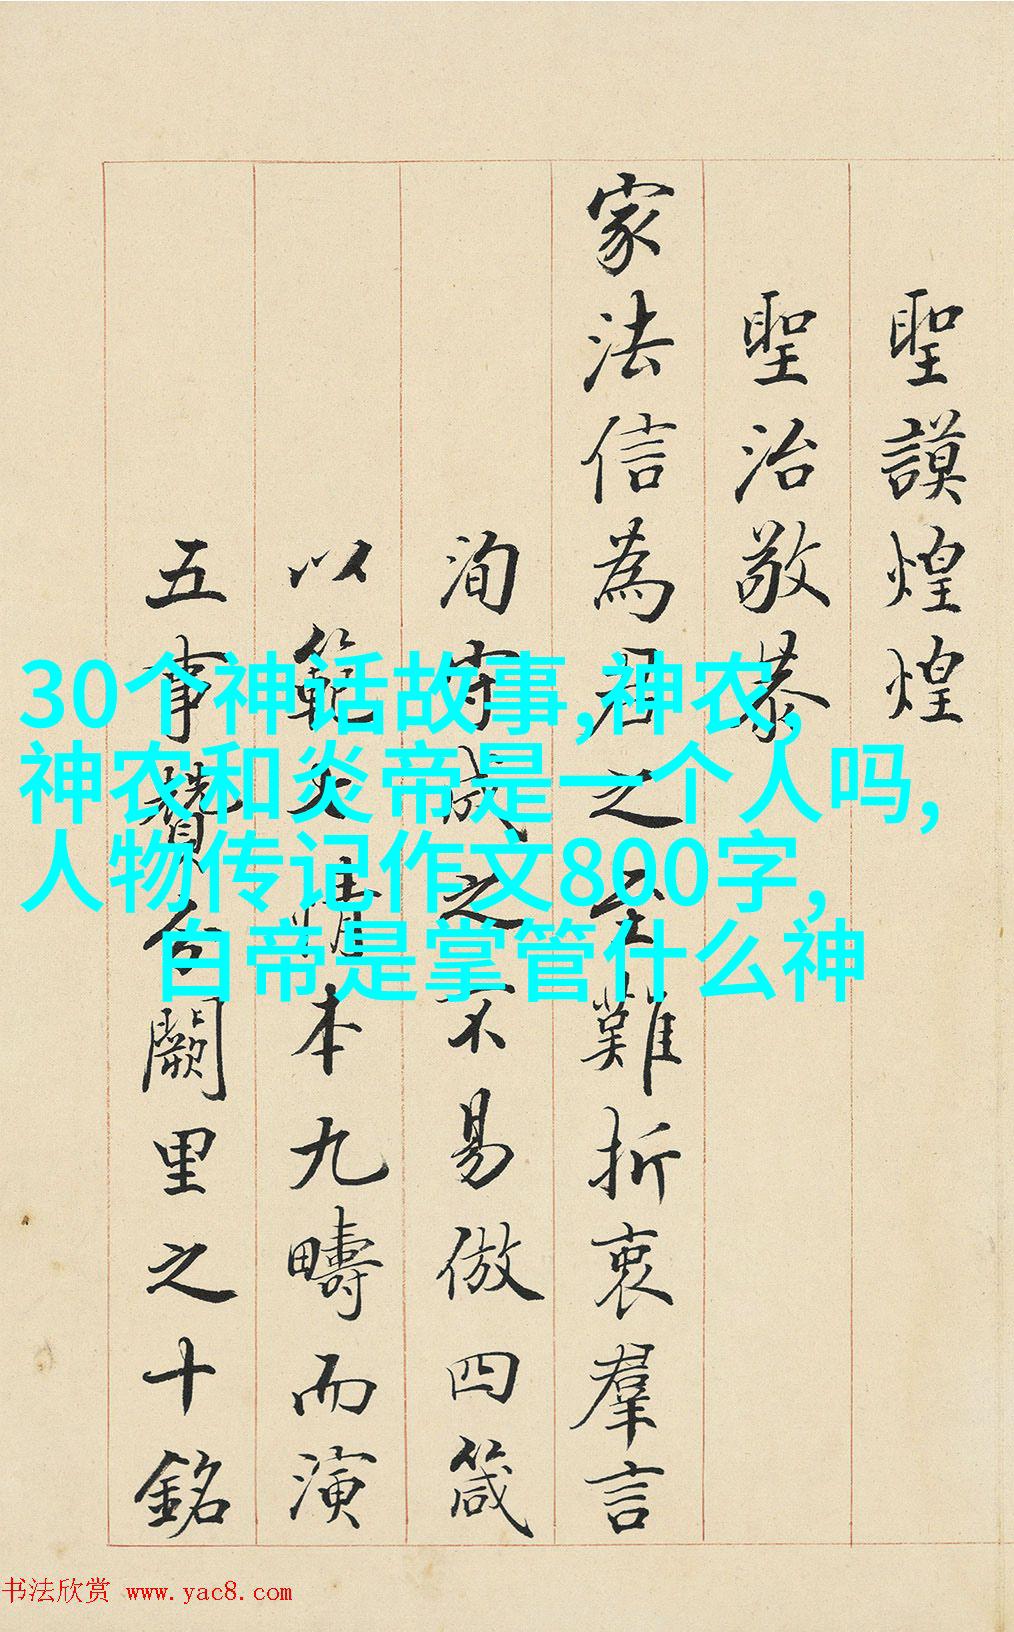 聖謨煌煌
聖治敬恭
家法信為君之難折衷羣言
洵守成之不易倣四箴
以範情本九疇而演
五事贊闕里之十銘
30个神话故事,神农,
神农和炎帝是一个人吗,
人物传记作文800字,
白帝是掌管什么神
书法欣赏 www.yac8.com